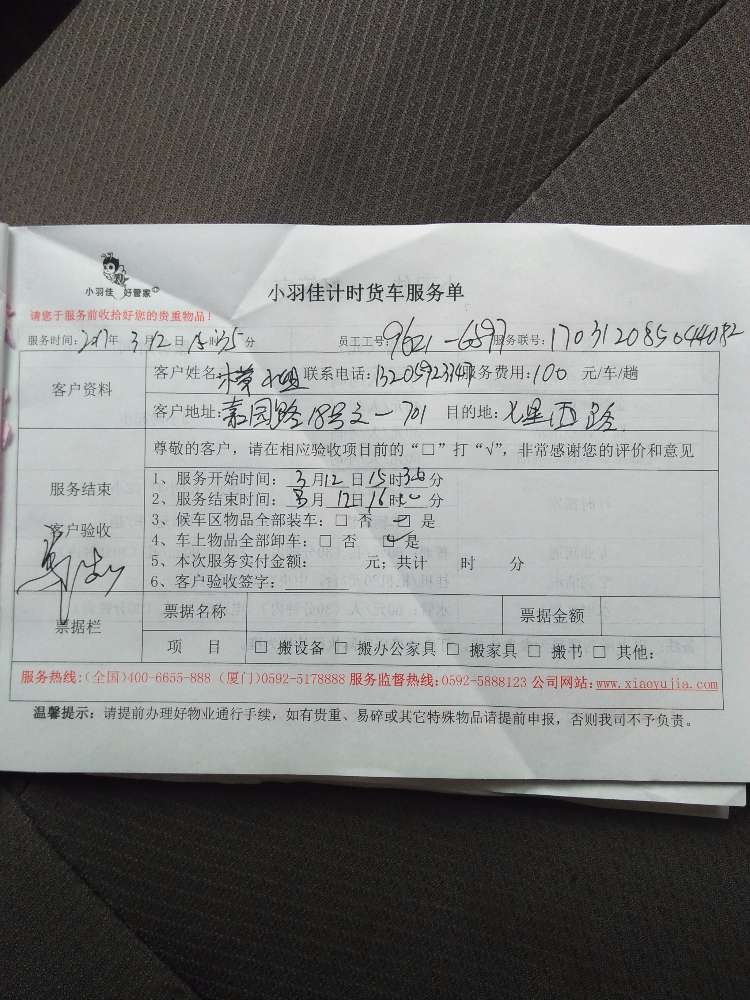 小羽佳 好管家
小羽佳计时货车服务单
请您于服务前收拾好您的贵重物品！
服务时间：2017年 3月12日 15时35分 员工工号：9621-6597 服务联号：170312085644082
客户资料
客户姓名： 小姐 联系电话：13205923347 服务费用：100 元/车/趟
客户地址：嘉园路18号之一701 目的地：七星西路
尊敬的客户，请在相应验收项目前的“□”打“√”，非常感谢您的评价和意见
服务结束
客户验收
1、服务开始时间：3月12日15时36分
2、服务结束时间：3月12日16时 分
3、候车区物品全部装车：□ 否 ☑ 是
4、车上物品全部卸车：□ 否 ☑ 是
5、本次服务实付金额： 元；共计 时 分
6、客户验收签字：
票据栏
票据名称 票据金额
项 目 □ 搬设备 □ 搬办公家具 □ 搬家具 □ 搬书 □ 其他：
服务热线：(全国)400-6655-888 (厦门)0592-5178888 服务监督热线：0592-5888123 公司网站：www.xiaoyujia.com
温馨提示：请提前办理好物业通行手续，如有贵重、易碎或其它特殊物品请提前申报，否则我司不予负责。